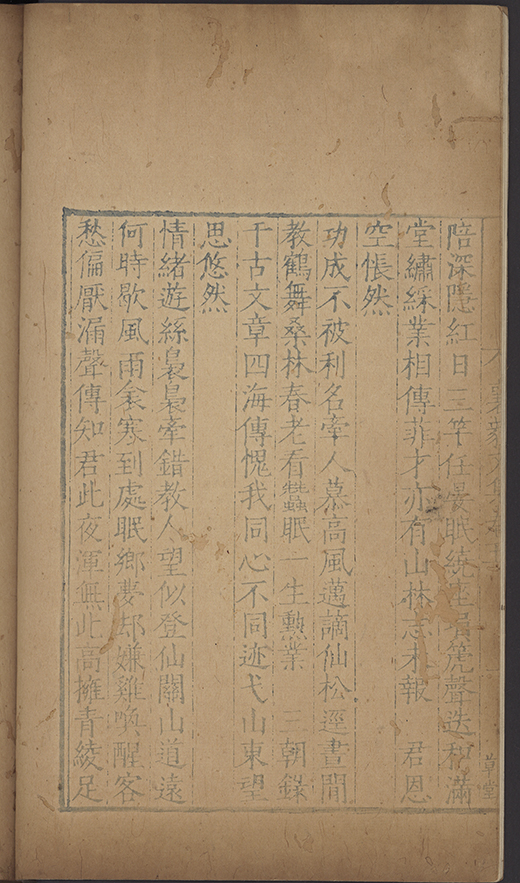 陪深隱紅日三竿任晏眠繞座塤箎聲迭和滿
堂繡綵業相傳菲才亦有山林志未報　君恩
空悵然
功成不被利名牽人慕高風邁謫仙松逕晝閒
教鶴舞桑林春老看蠶眠一生勲業　三朝錄
千古文章四海傳愧我同心不同迹弋山東望
思悠然
情緒遊絲裊裊牽錯教人望似登仙關山道遠
何時歇風雨食寒到處眠鄉夢却嫌雞喚醒客
愁偏厭漏聲傳知君此夜渾無此高擁青綾足
草堂